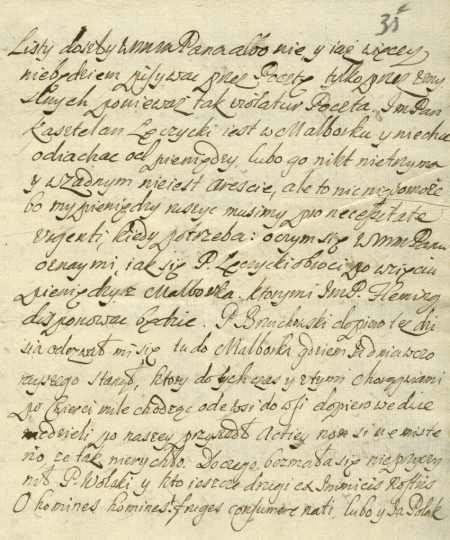 35
Listy doszły WMM Pana albo nie, y iuż więcey
niebędziem pisywać przez Pocztę tylko przez umy
slnych ponieważ tak violatur Poczta. Im Pan
Kasztelan Łęczycki iest w Malborku y niechce
odiachać od pieniędzy, lubo go nikt nietrzyma
y w żadnym nieiest areście, ale to nic niepomoże
bo my pieniędzy ruszyć musimy pro necessitate
urgenti, kiedy potrzeba: o czym się WMM Panu
oznaymi, iak się P. Łęczycki obroci po wzięciu
pieniędzy z Malborka, ktorymi ImP. Fleming
disponować będzie. P. Bruchowski dopiero też dzi
sia odezwał mi się tu do Malborka gdziem
stanął, ktory dotych czas y z tymi chorągwiami
po ćwierci mile chodząc ode wsi do wsi dopiero we dwie
niedzieli po naszey przyszedł Actiey
no że tak nierychło. Do czego, bezmała się nieprzyczy
nił P. Wolski y kto ieszcze drugi ex Inimicis nostris
O homines homines! fruges consumere nati. lubo y Ja Polak